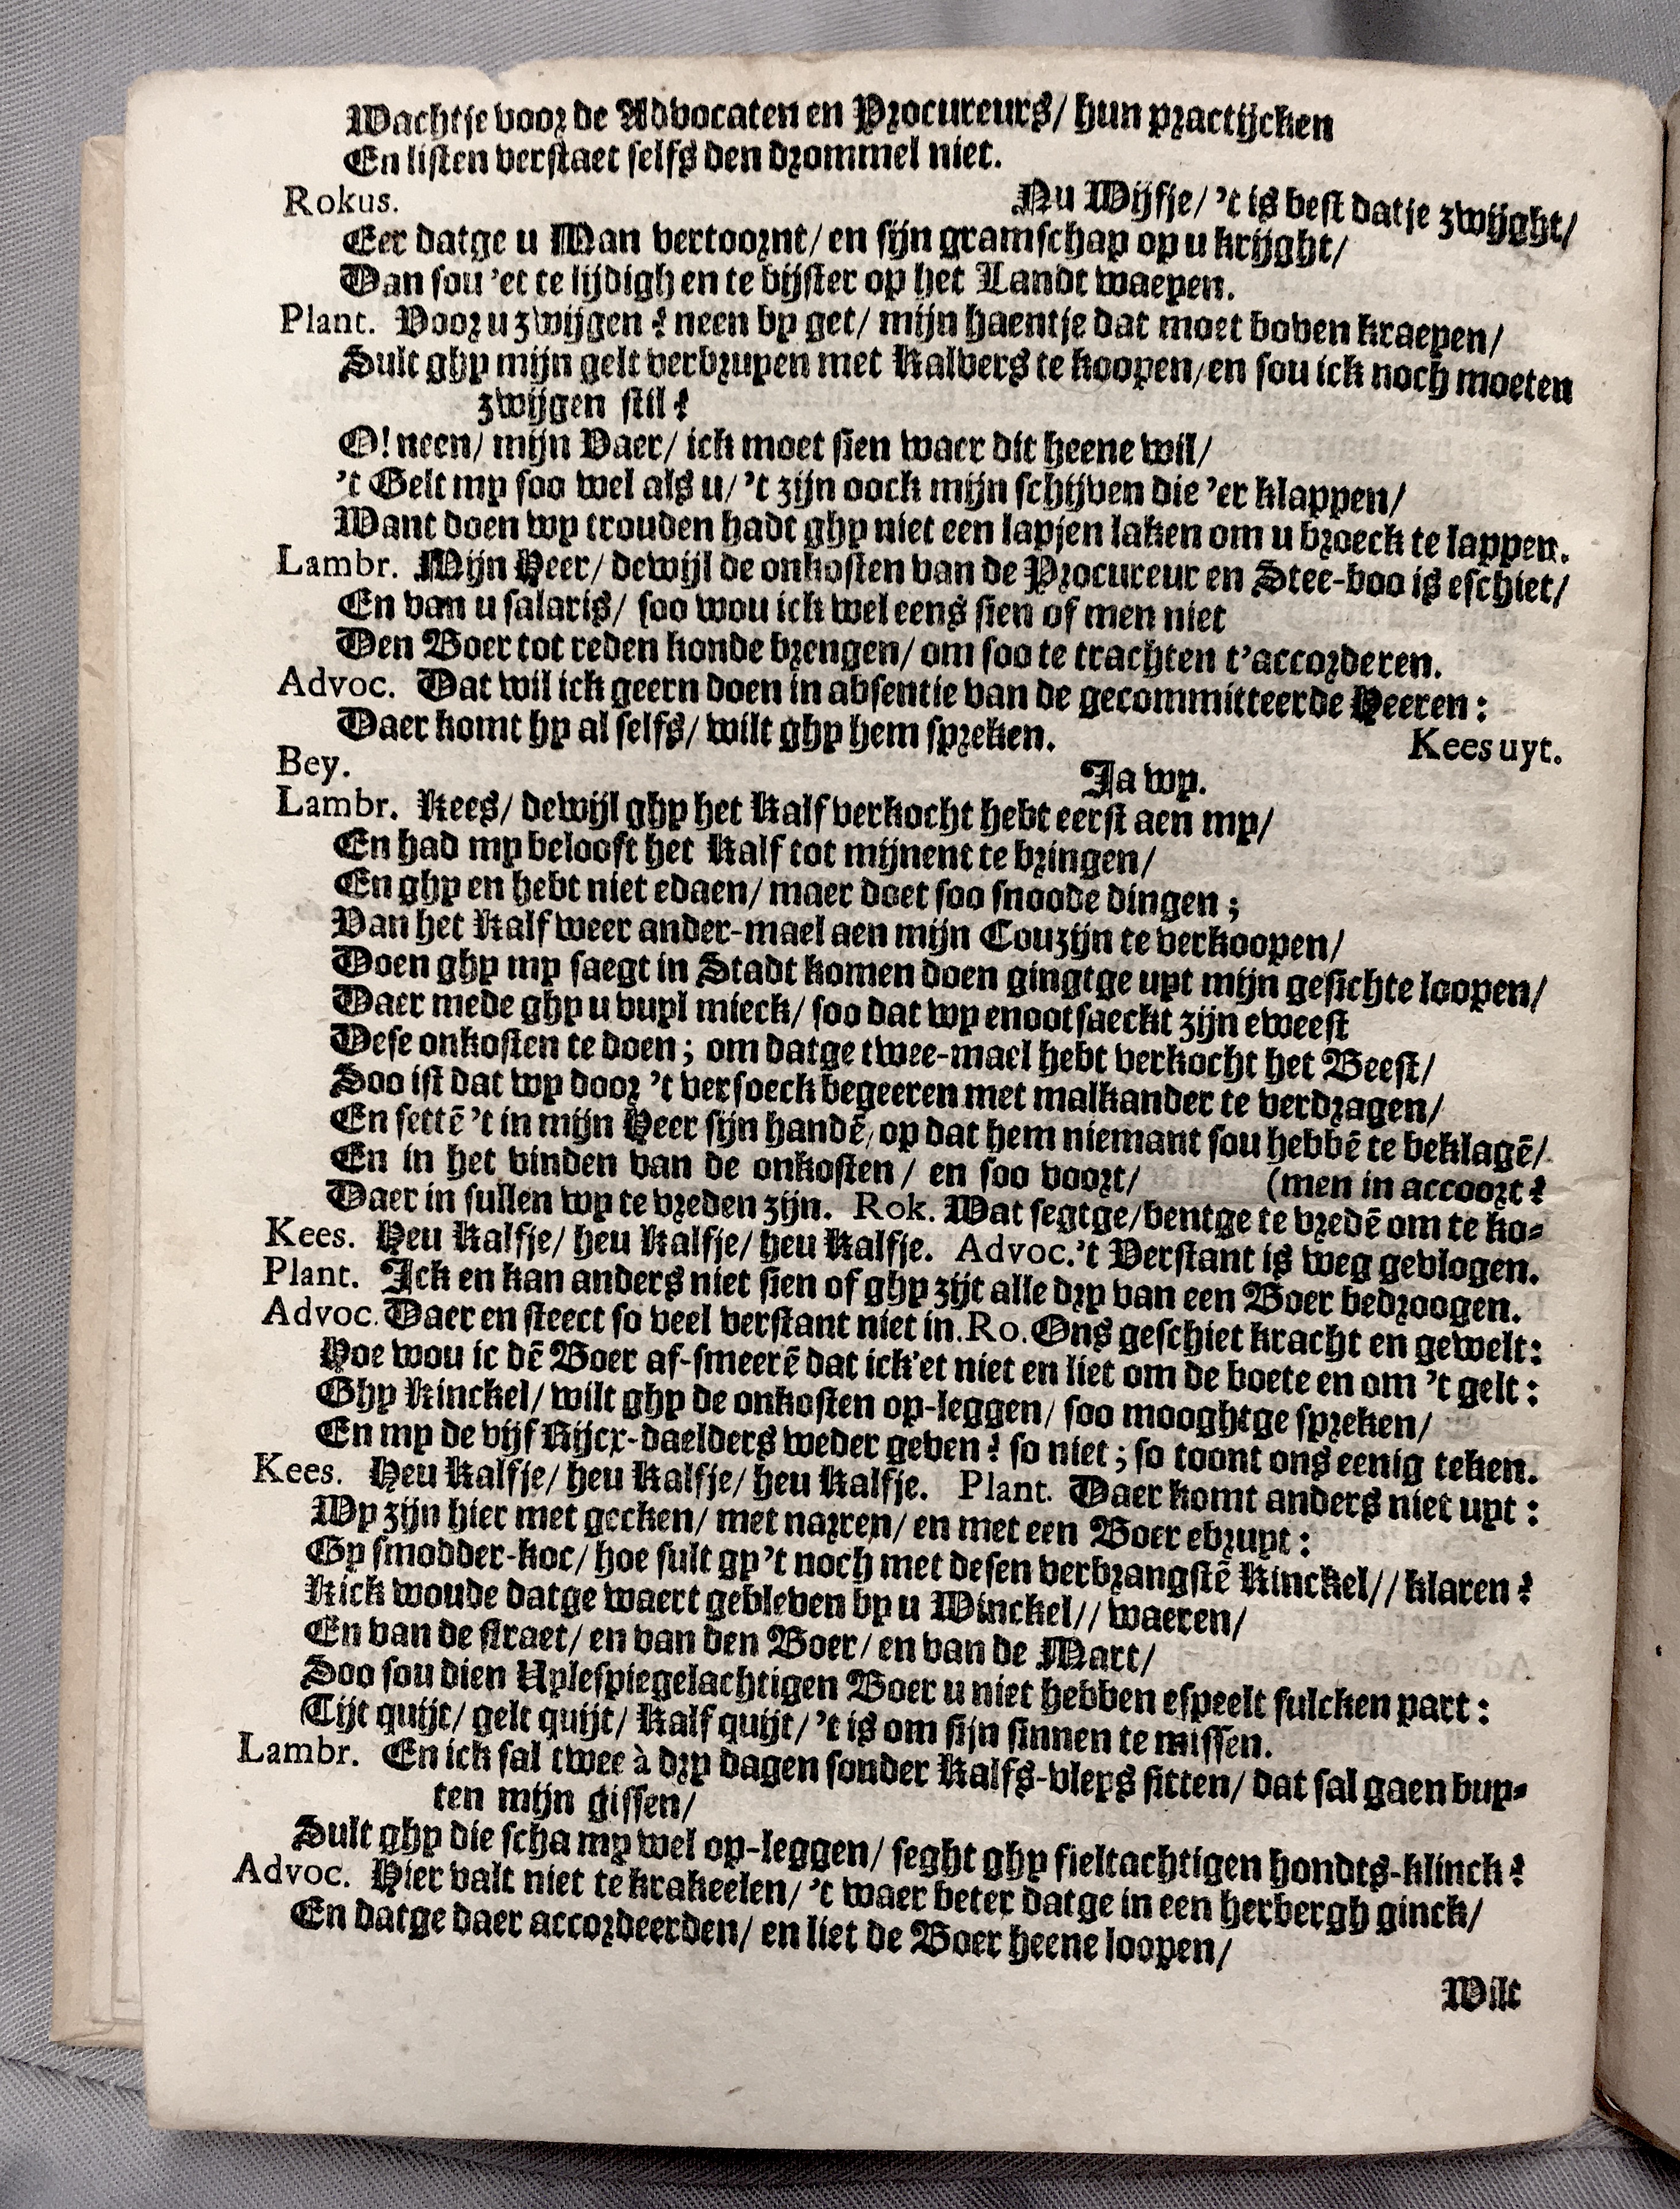 Wachtje voor de Advocaten en Procureurs/ hun practijcken
En listen verstaet selfs den drommel niet.
Rokus. Nu Wijfje/ 't is best datje zwijght/
Eer datge u Man vertoornt/ en sijn gramschap op u krijght/
Dan sou 'et te lijdigh en te bijster op het Landt waeyen.
Plant. Voor u zwijgen? neen by get/ mijn haentje dat moet boven kraeyen/
Sult ghy mijn gelt verbruyen met Kalvers te koopen/ en sou ick noch moeten
zwijgen stil?
O! neen/ mijn Vaer/ ick moet sien waer dit heene wil/
't Gelt my soo wel als u/ 't zijn oock mijn schijven die 'er klappen/
Want doen wy trouden hadt ghy niet een lapjen laken om u broeck te lappen.
Lambr. Mijn Heer/ dewijl de onkosten van de Procureur en Stee-boo is eschiet/
En van u salaris/ soo wou ick wel eens sien of men niet
Den Boer tot reden konde brengen/ om soo te trachten t'accorderen.
Advoc. Dat wil ick geern doen in absentie van de gecommitteerde Heeren:
Daer komt hy al selfs/ wilt ghy hem spreken. Kees uyt.
Bey. Ja wy.
Lambr. Kees/ dewijl ghy het Kalf verkocht hebt eerst aen my/
En had my belooft het Kalf tot mijnent te bringen/
En ghy en hebt niet edaen/ maer doet soo snoode dingen;
Van het Kalf weer ander-mael aen mijn Couzijn te verkoopen/
Doen ghy my saegt in Stadt komen doen gingtge uyt mijn gesichte loopen/
Daer mede ghy u vuyl mieck/ soo dat wy enootsaeckt zijn eweest
Dese onkosten te doen; om datge twee-mael hebt verkocht het Beest/
Soo ist dat wy door 't versoeck begeeren met malkander te verdragen/
En settē 't in mijn Heer sijn handē/ op dat hem niemant sou hebbē te beklagē/
En in het vinden van de onkosten/ en soo voort/ (men in accoort?
Daer in sullen wy te vreden zijn. Rok. Wat segtge/ bentge te vredē om te ko-
Kees. Heu Kalfje/ heu Kalfje/ heu Kalfje. Advoc. 't Verstant is weg gevlogen.
Plant. Ick en kan anders niet sien of ghy zijt alle dry van een Boer bedroogen.
Advoc. Daer en steect so veel verstant niet in. Ro. Ons geschiet kracht en gewelt:
Hoe wou ic dē Boer af-smeerē dat ick'et niet en liet om de boete en om 't gelt:
Ghy Kinckel/ wilt ghy de onkosten op-leggen/ soo mooghtge spreken/
En my de vijf Rijcx-daelders weder geven? so niet; so toont ons eenig teken.
Kees. Heu Kalfje/ heu Kalfje/ heu Kalfje. Plant. Daer komt anders niet uyt:
Wy zijn hier met gecken/ met narren/ en met een Boer ebruyt:
Gy smodder-koc/ hoe sult gy 't noch met desen verbrangstē Kinckel// klaren?
Kick woude datge waert gebleven by u Winckel// waeren/
En van de straet/ en van den Boer/ en van de Mart/
Soo sou dien Uylespiegelachtigen Boer u niet hebben espeelt sulcken part:
Tijt quijt/ gelt quijt/ Kalf quijt/ 't is om sijn sinnen te missen.
Lambr. En ick sal twee à dry dagen sonder Kalfs-vleys sitten/ dat sal gaen buy-
ten mijn gissen/
Sult ghy die scha my wel op-leggen/ seght ghy fieltachtigen hondts-klinck?
Advoc. Hier valt niet te krakeelen/ 't waer beter datge in een herbergh ginck/
En datge daer accordeerden/ en liet de Boer heene loopen/
Wilt